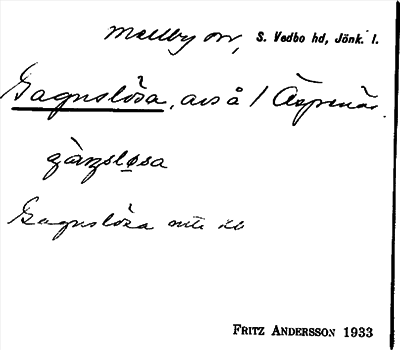 Mellby sn, S. Vedbo hd, Jönk. l.
Gagnslösa, avs å / Äspenäs.
Gagnslösa
FRITZ ANDERSSON 1933